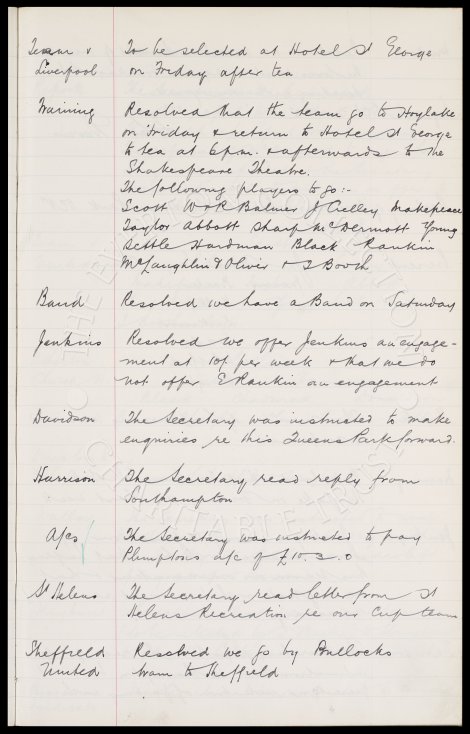 Team v To be selected at Hotel St George
Liverpool on Friday after tea
Training Resolved that the team go to Hoylake
on Friday & return to Hotel St George
to tea at 6 pm. & afterwards to the
Shakespeare Theatre.
The following players to go:-
Scott W & R Balmer J Crelley Makepeace
Taylor Abbott Sharp McDermott Young
Settle Hardman Black Rankin
McLaughlin & Oliver & T Booth
Band Resolved we have a Band on Saturday
Jenkins Resolved we offer Jenkins an engage-
ment at 10/- per week & that we do
not offer E Rankin an engagement
Davidson The Secretary was instructed to make
enquiries re this Queens Park forward.
Harrison The Secretary read reply from
Southampton
A/cs The Secretary was instructed to pay
Plimptons a/c of £10.3.0
St Helens The Secretary read letter from St
Helens Recreation re our Cup team
Sheffield Resolved we go by Bullocks
United tram to Sheffield
THE EVERTON COLLECTION
CHARITABLE TRUST